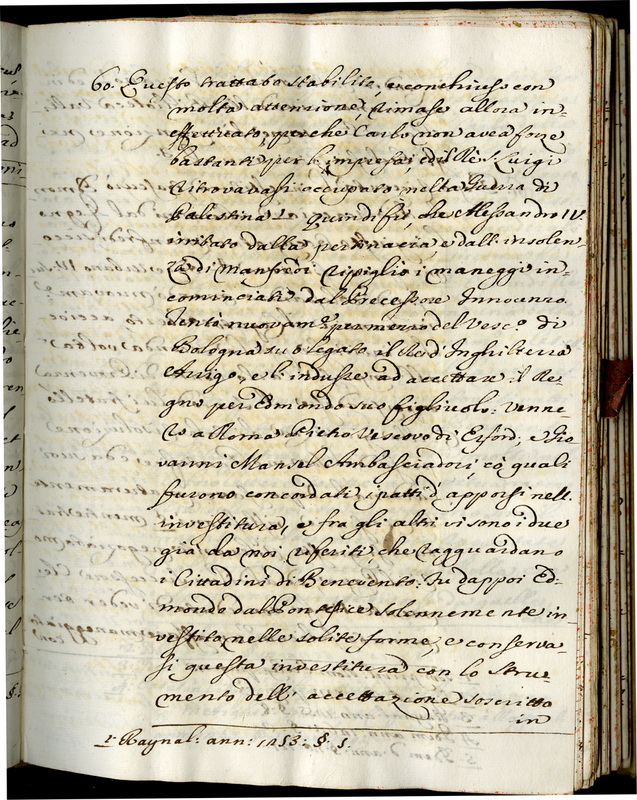 60. Questo trattato stabilito, e conchiuso con
molta attenzione, rimase allora in-
effettuato, perche Carlo non avea forze
bastanti per l'impresa, ed il Rè S. Luigi
ritrovavasi occupato nella Guerra di
Palestina 1. Quindi fù che Alessandro IV.
irritato dalla pertinacia e dall'insolen-
za di Manfredi ripigliò i maneggi in-
cominciati dal Precessore Innocenzo.
Tentò nuovam.e per mezzo del Vesc.o di
Bologna suo legato il Rè d'Inghilterra
Arrigo, e l'indusse ad accettare il Re-
gno per Edmondo suo figliuolo: venne-
ro a Roma Pietro Vescovo di Erford, e Gio-
vanni Mansel Ambasciadori, co' quali
furono concordati i patti d'apporsi nell'
investitura, e fra gli altri vi sono i due
già da noi riferiti, che ragguardano
i Cittadini di Benevento: Fu dappoi Ed-
mondo dal Pontefice solennemente in-
vestito nelle solite forme, e conserva-
si questa investitura con lo Stru-
mento dell'accettazione soscritto
in
1. Raynal: ann: 1253: §. 5.